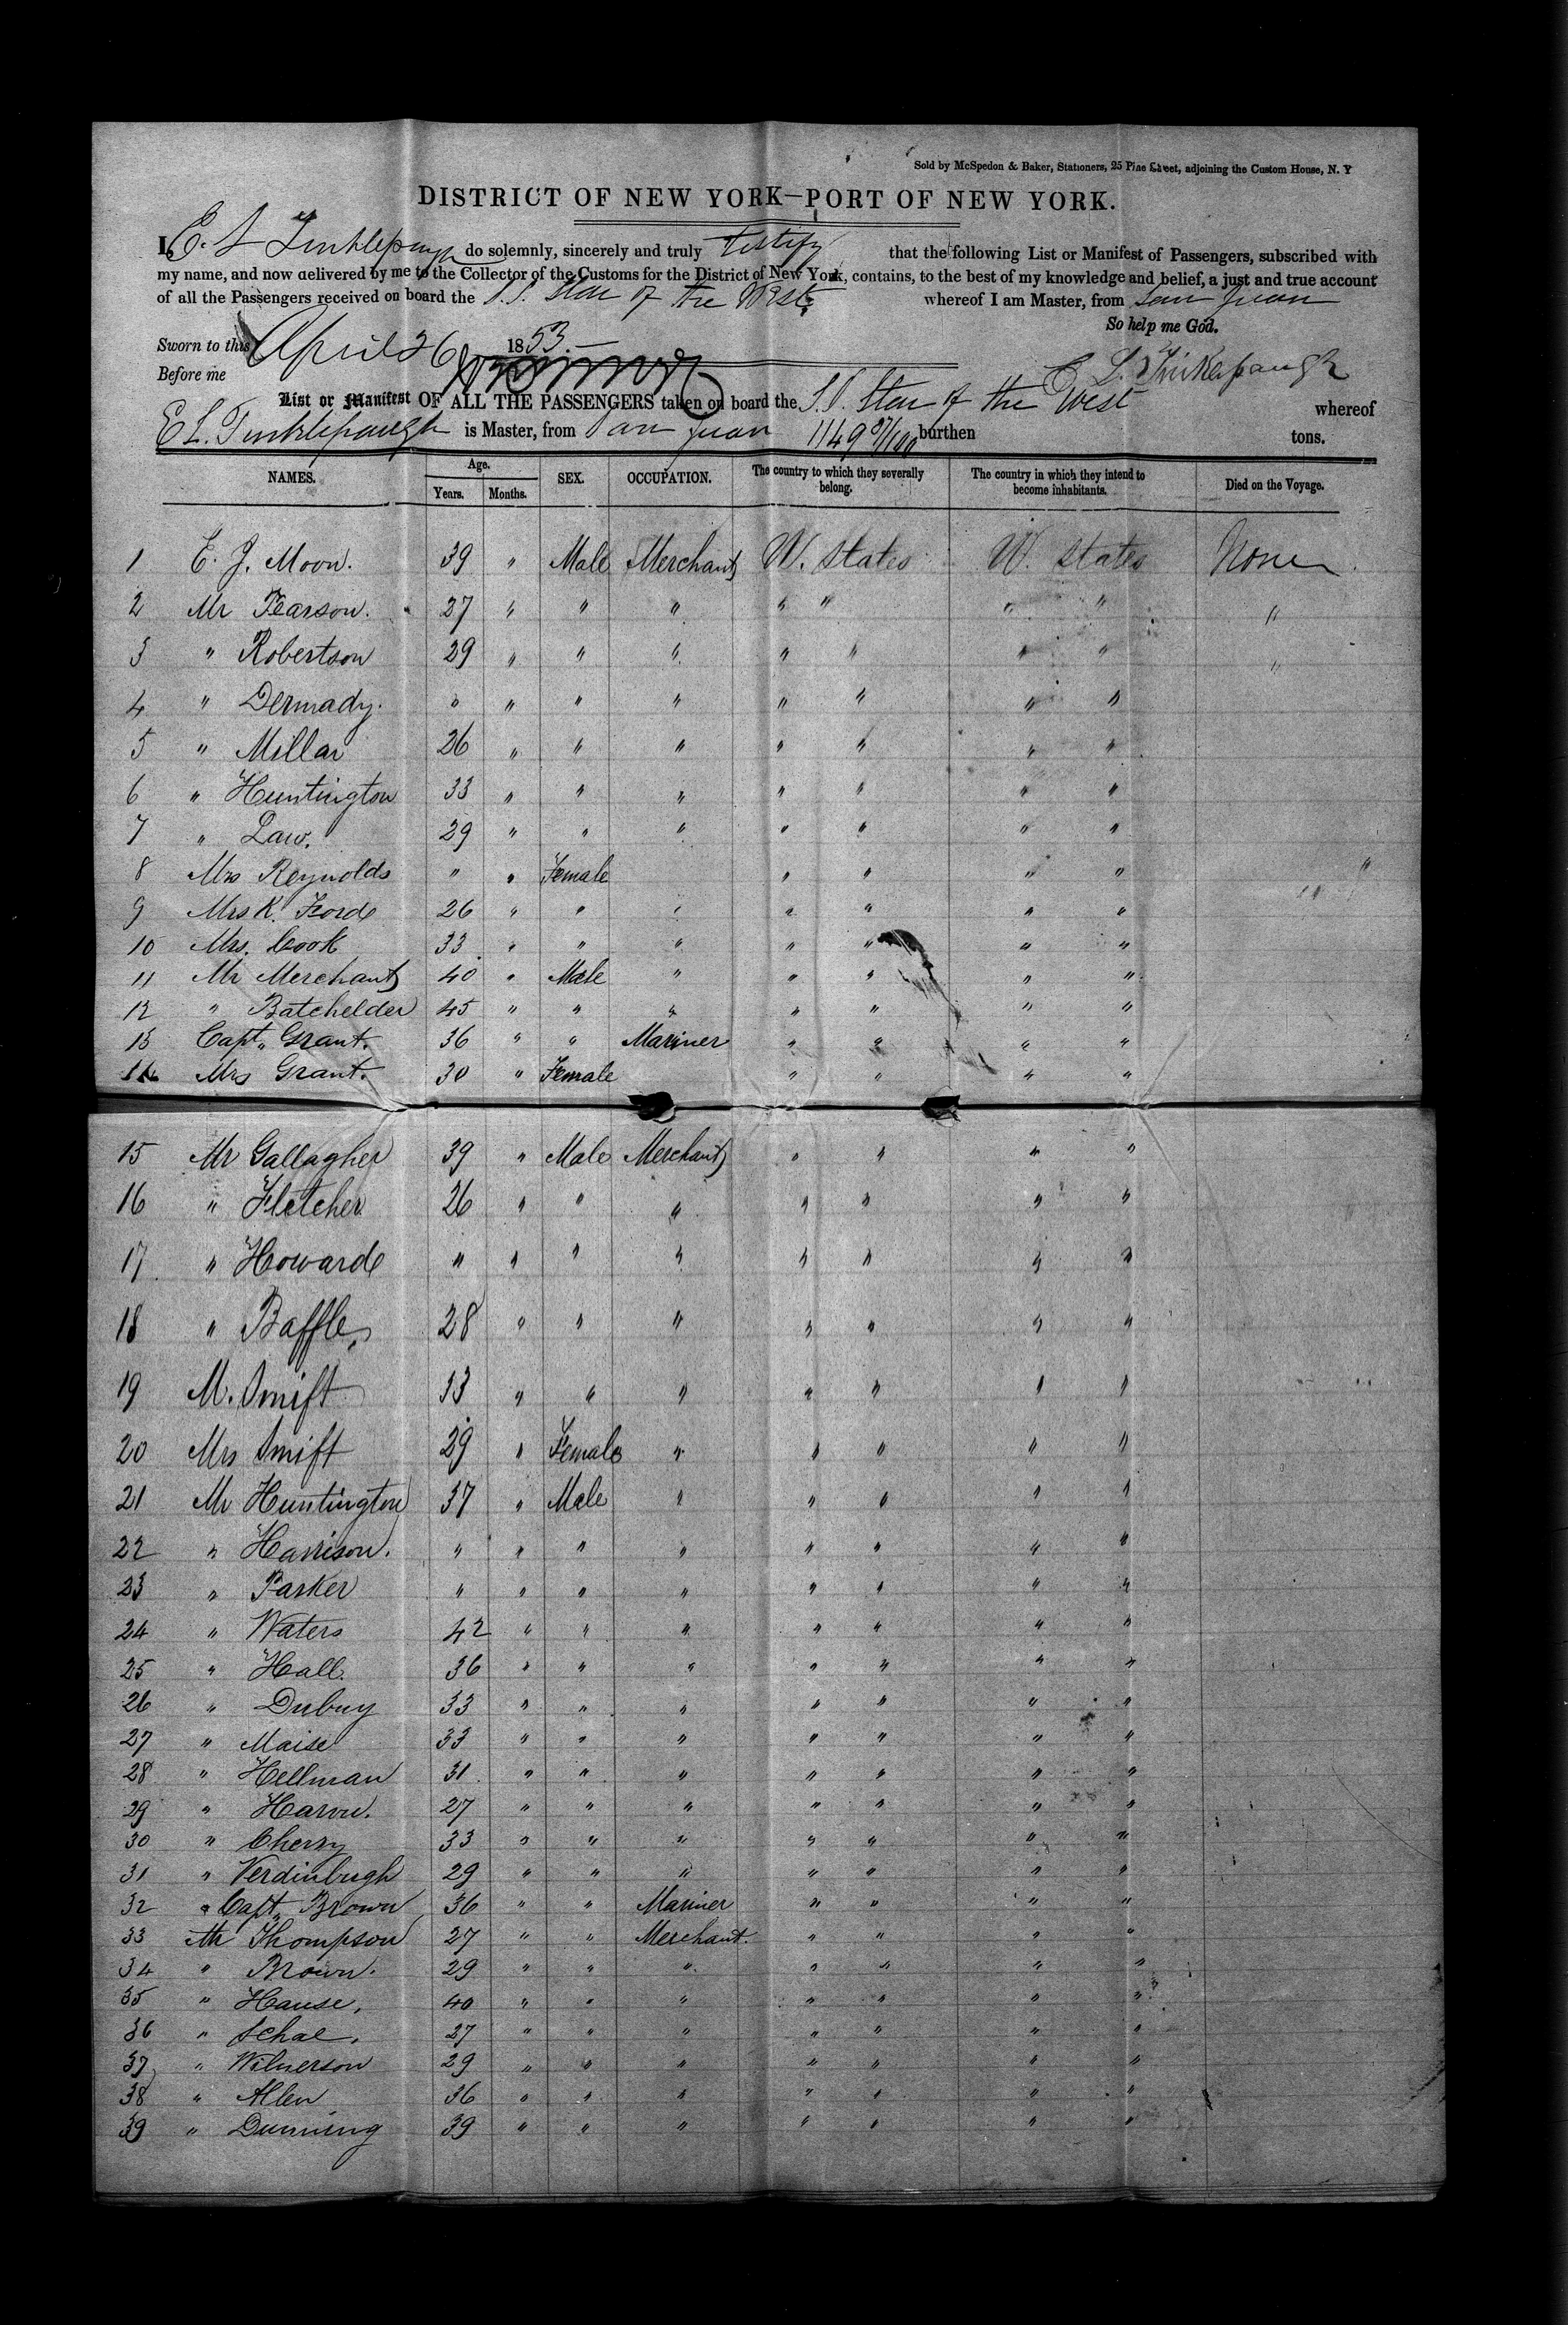 Sold by McSpedon & Baker, Stationers, 25 Pine Street, adjoining the Custom House, N. Y
DISTRICT OF NEW YORK—PORT OF NEW YORK.
I, E. L Tinklepaugh do solemnly, sincerely and truly testify that the following List or Manifest of Passengers, subscribed with
my name, and now delivered by me to the Collector of the Customs for the District of New York, contains, to the best of my knowledge and belief, a just and true account
of all the Passengers received on board the S.S. Star of the West whereof I am Master, from San Juan
So help me God.
Sworn to this April 26 1853.
Before me E. L. Tinklepaugh
List or Manifest OF ALL THE PASSENGERS taken on board the S.S. Star of the West whereof
E L. Tinklepaugh is Master, from San Juan 1149 burthen tons.
NAMES. Age. Years. Months. SEX. OCCUPATION. The country to which they severally belong. The country in which they intend to become inhabitants. Died on the Voyage.
1 E. J. Moon. 39 " Male Merchant U. States U. States None
2 Mr Pearson. 27 " " " " " " " "
3 " Robertson 29 " " " " " " " "
4 " Dermady. " " " " " " " "
5 " Millar 26 " " " " " " "
6 " Huntington 33 " " " " " " "
7 " Law. 29 " " " " " " "
8 Mrs Reynolds " " Female " " " "
9 Mrs K. Ford 26 " " " " " " "
10 Mrs. Cook 33 " " " " " " "
11 Mr Merchant 40 " Male " " " " "
12 " Batchelder 45 " " " " " " "
13 Capt. Grant. 36 " " Mariner " " " "
14 Mrs Grant. 30 " Female " " " "
15 Mr Gallagher 39 " Male Merchant " " " "
16 " Fletcher 26 " " " " " " "
17 " Howard " " " " " " " "
18 " Baffle, 28 " " " " " " "
19 M. Swift 33 " " " " " " "
20 Mrs Swift 29 " Female " " " " "
21 Mr Huntington 37 " Male " " " " "
22 " Harrison. " " " " " " " "
23 " Parker " " " " " " " "
24 " Waters 42 " " " " " " "
25 " Hall. 36 " " " " " " "
26 " Dubuy 33 " " " " " " "
27 " Maise 33 " " " " " " "
28 " Hellman 31 " " " " " " "
29 " 27 " " " " " " "
30 " Cherry 33 " " " " " " "
31 " Verdinburgh 29 " " " " " " "
32 " Capt. Brown 36 " " Mariner " " " "
33 Mr Thompson 27 " " Merchant. " " " "
34 " Brown. 29 " " " " " " "
35 " Hause, 40 " " " " " " "
36 " Schae, 27 " " " " " " "
37 " Wilnerson 29 " " " " " " "
38 " Allen 36 " " " " " " "
39 " Dunning 39 " " " " " " "